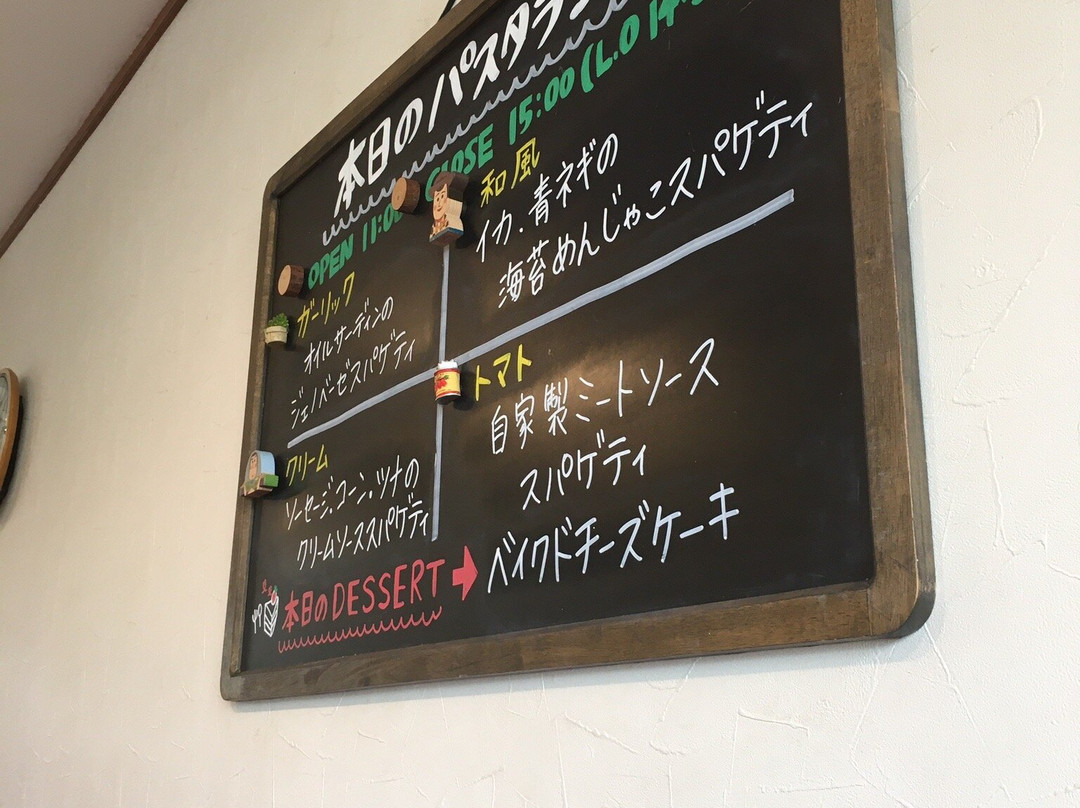 本日のパスタラン
OPEN 11:00 CLOSE 15:00 (L.O 14:
ガーリック
オイルサーディンの
ジェノベーゼスパゲティ
和風
イカ.青ネギの
海苔めんじゃこスパゲティ
クリーム
ソーセージ.コーン.ツナの
クリームソーススパゲティ
トマト
自家製ミートソース
スパゲティ
本日のDESSERT→ベイクドチーズケーキ